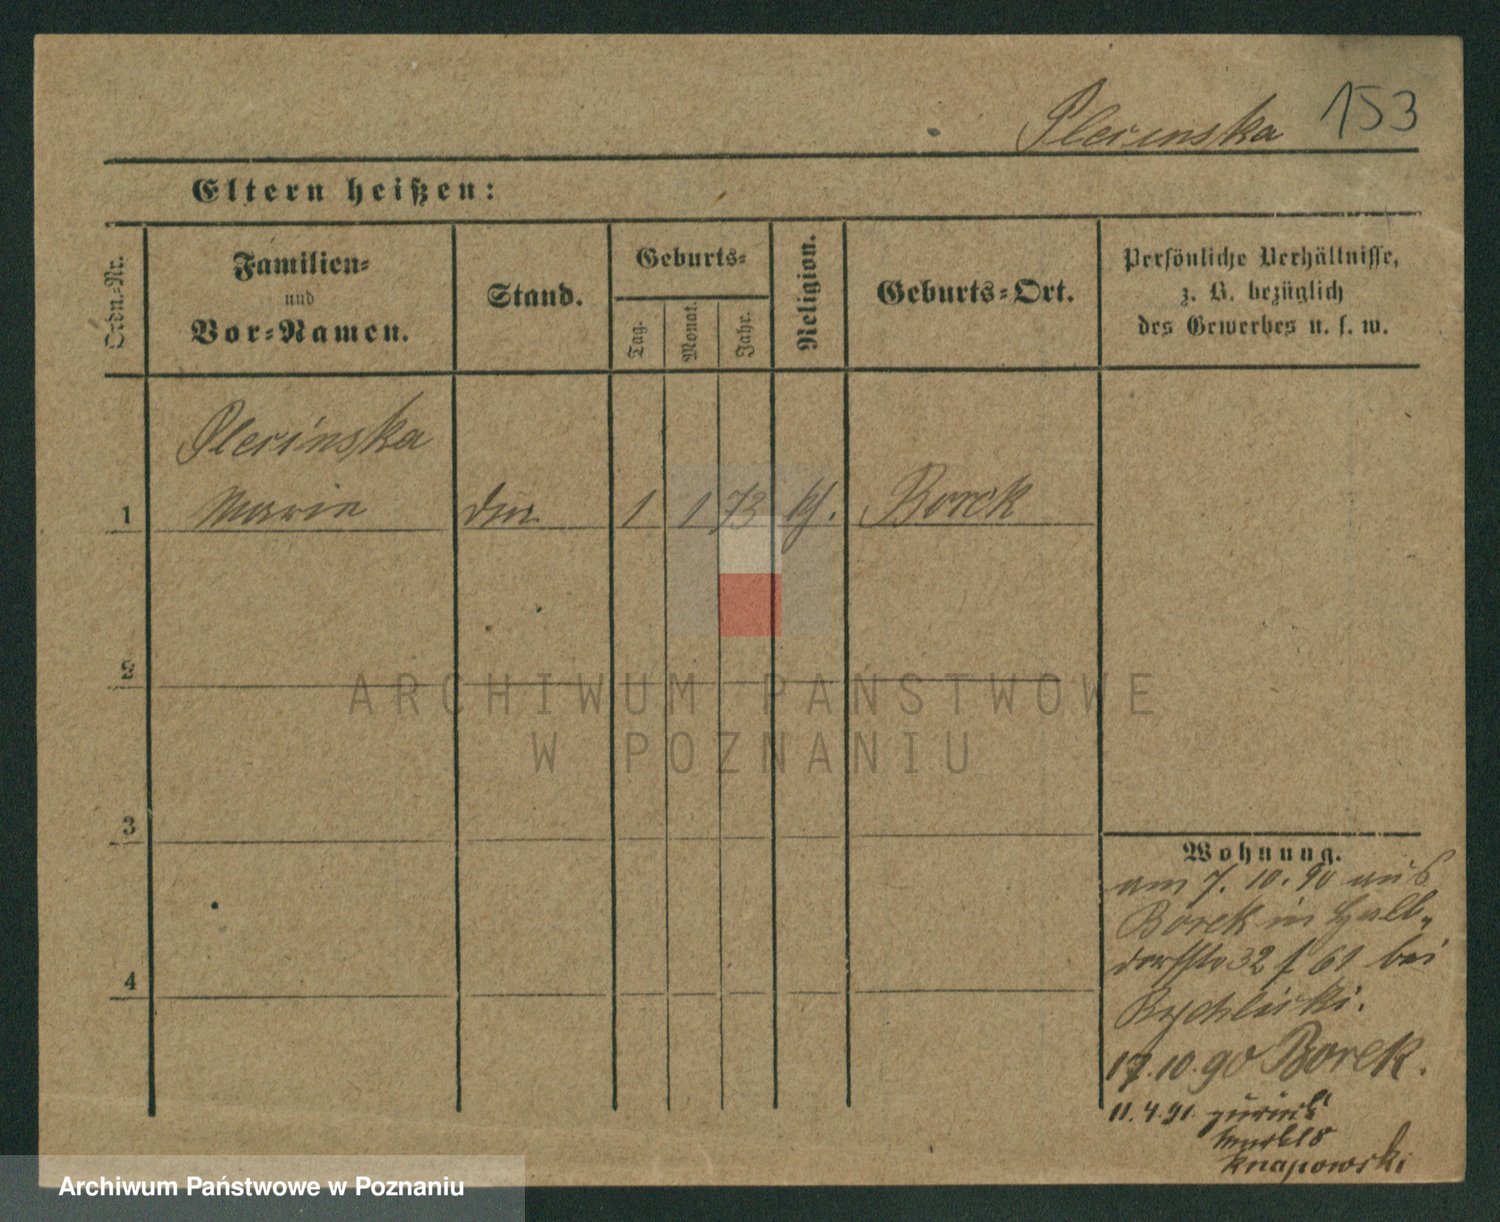 Plecinska 153
Eltern heißen:
Ordn.-Nr.
Familien-
und
Vor-Namen.
Stand.
Geburts-
Tag.
Monat.
Jahr.
Religion.
Geburts-Ort.
Persönliche Verhältnisse,
z. B. bezüglich
des Gewerbes u. s. w.
Plecinska
1 Marie 1 1 73 kt. Borek
2
3
4
Wohnung.
am 7. 10. 90 aus
Borek in Halb-
dorfstr 32 f 61 bei
Rychlicki.
17.10.90 Borek.
11.4.91. zurück
Knapowski
ARCHIWUM PAŃSTWOWE
W POZNANIU
Archiwum Państwowe w Poznaniu